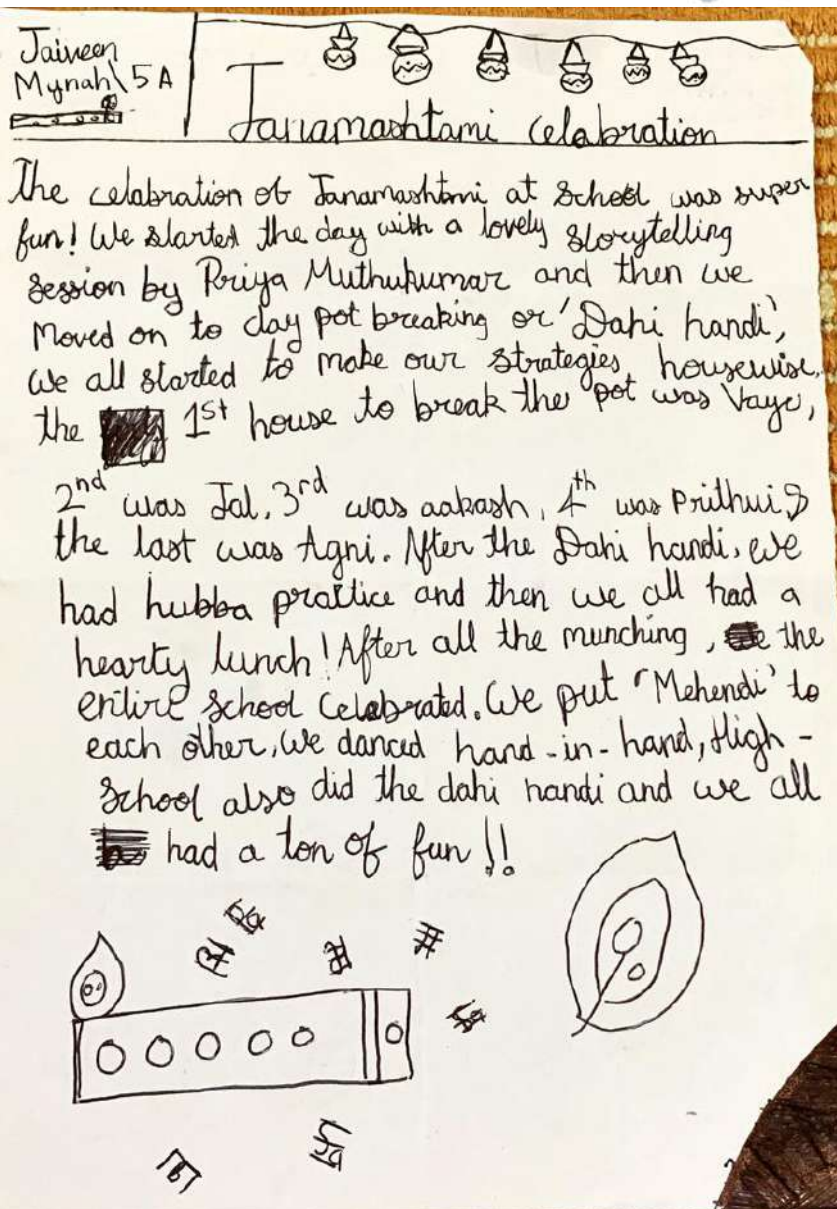 Jaiveen
Mynah\5A
Janamashtami Celabration
The celabration of Janamashtmi at school was super
fun! We started the day with a lovely storytelling
session by Priya Muthukumar and then we
Moved on to clay pot breaking or 'Dahi handi',
we all started to make our strategies, housewise.
the 1st house to break the pot was Vayu,
2nd was Jal, 3rd was aakash, 4th was Prithvi, &
the last was Agni. After the Dahi handi, we
had hubba practice and then we all had a
hearty lunch! After all the munching, the
entire school celebrated. We put 'Mehendi' to
each other, we danced hand-in-hand, High-
school also did the dahi handi and we all
had a ton of fun!!